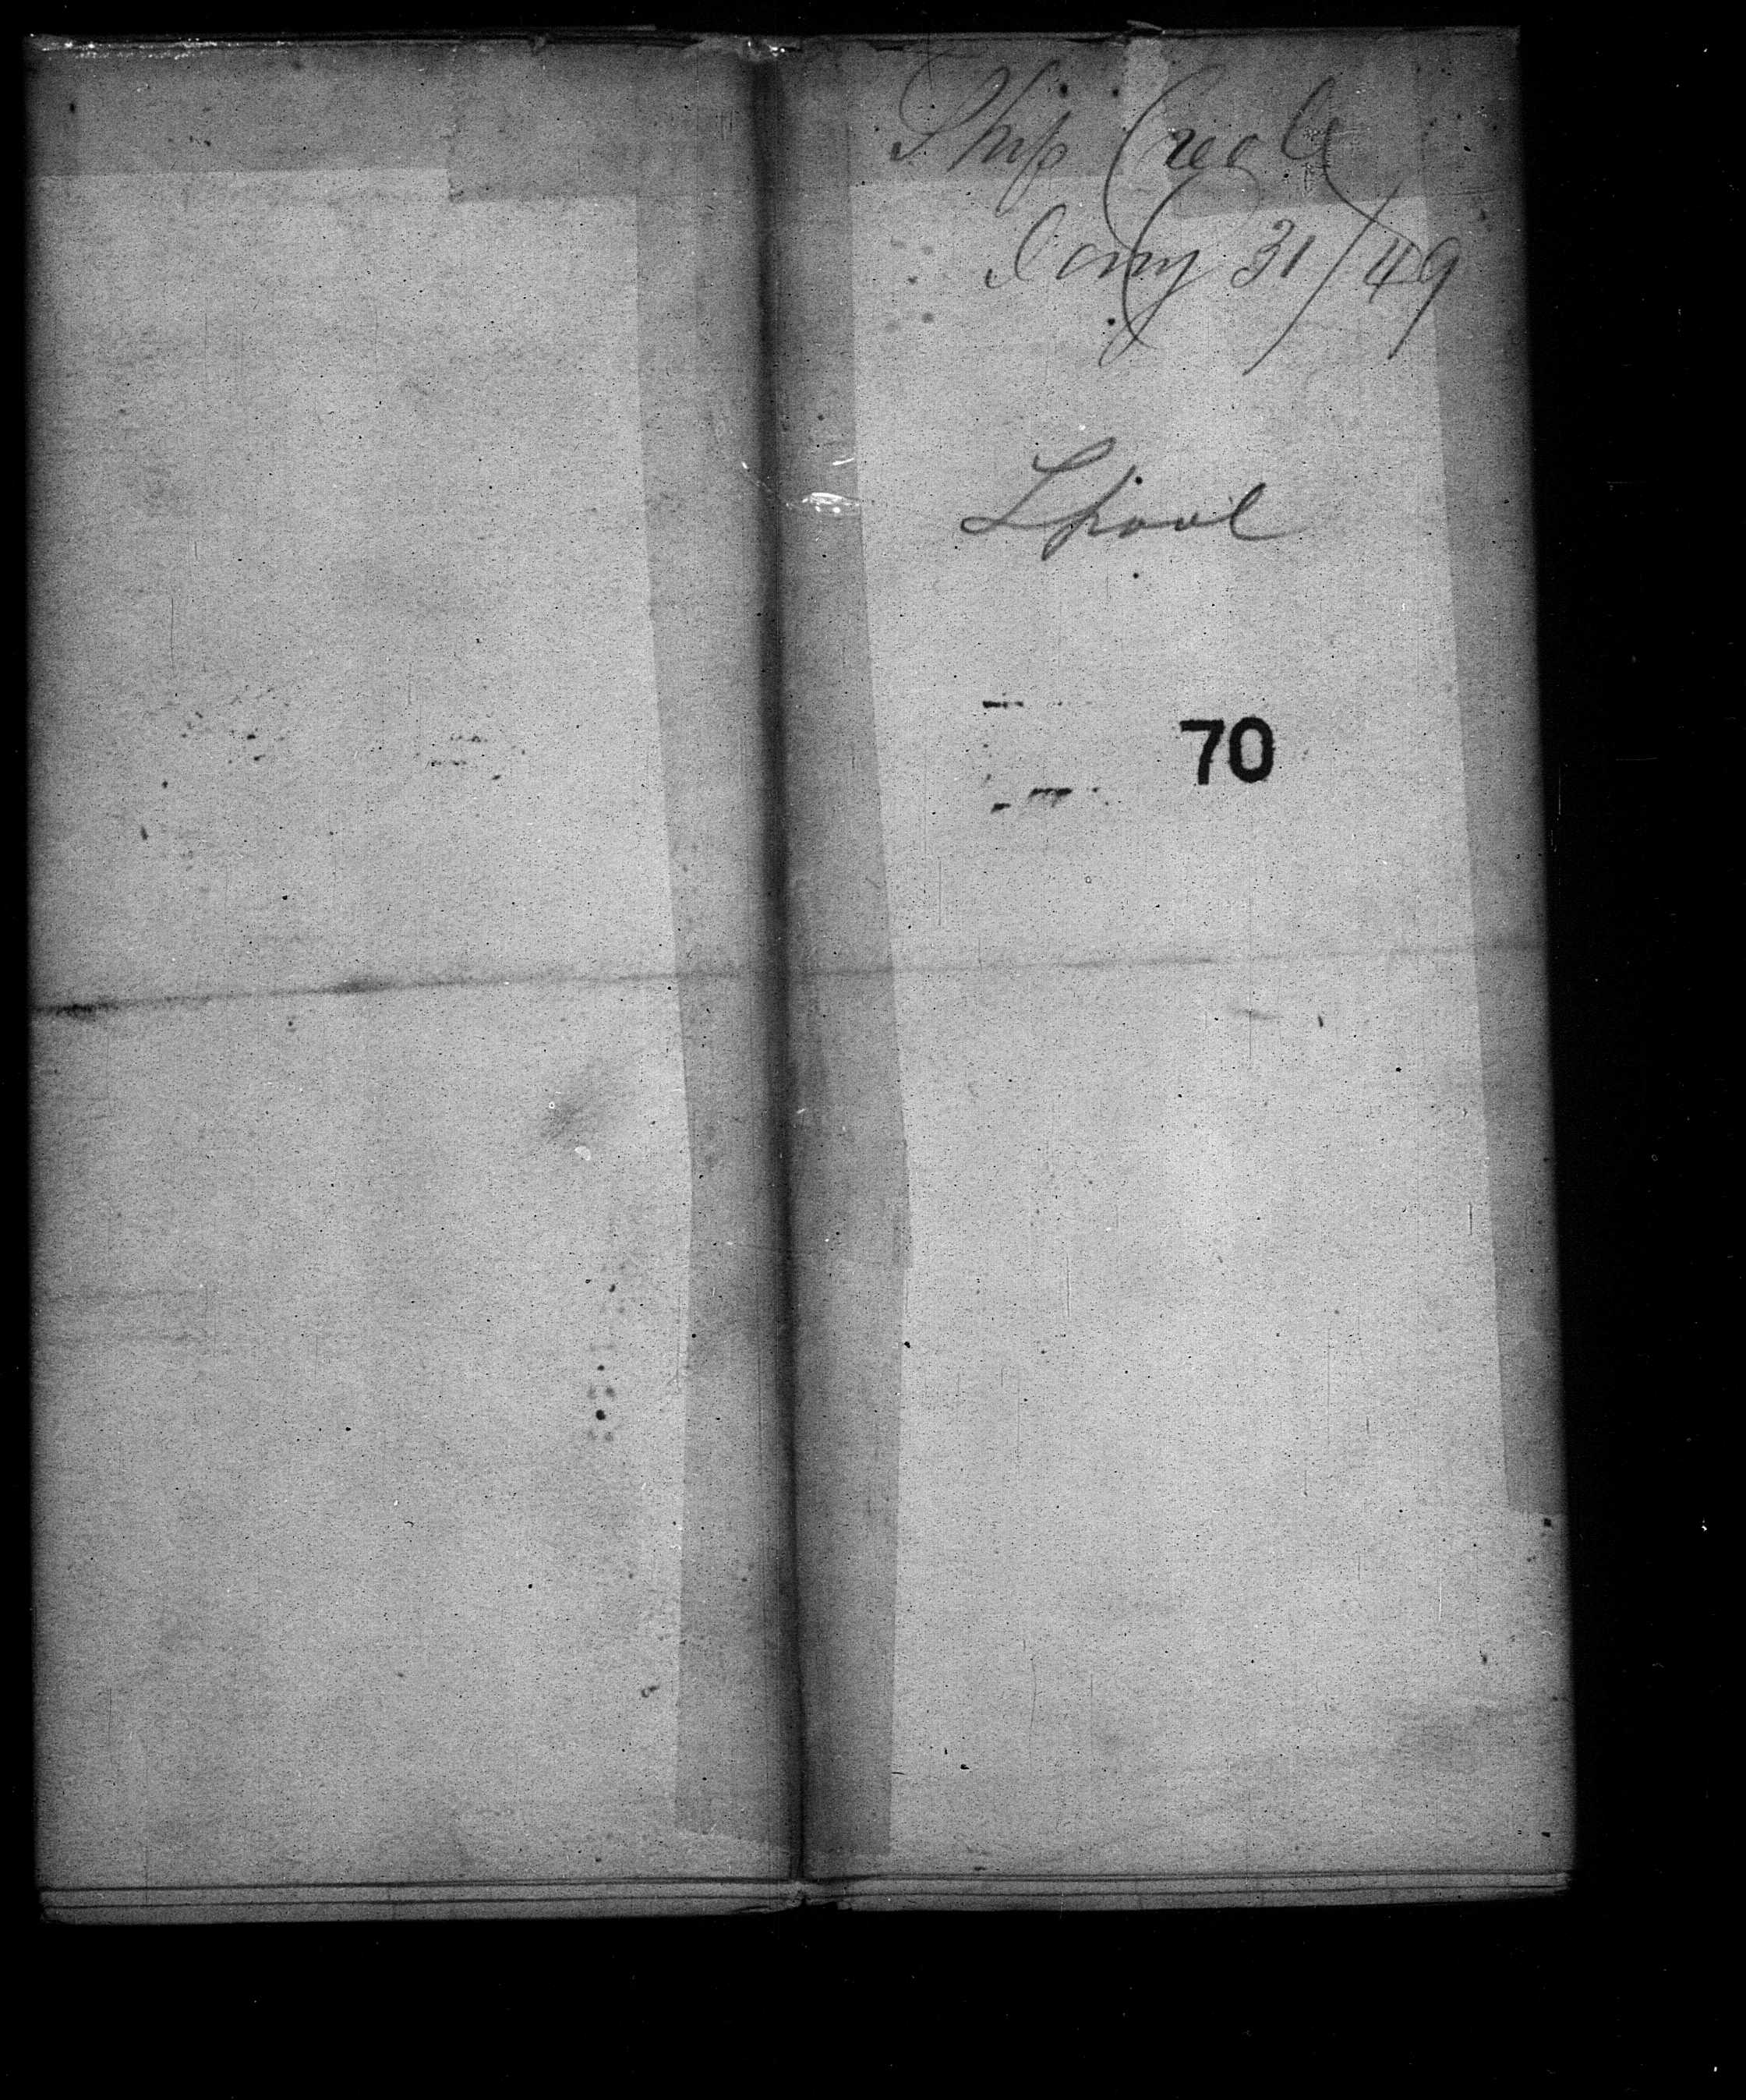 Ship Creole
Jany 31/49
Lpool
70